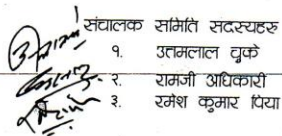 संचालक समिति सदस्यहरु
१. उतमलाल चुके
२. रामजी अधिकारी
३. रमेश कुमार पिया